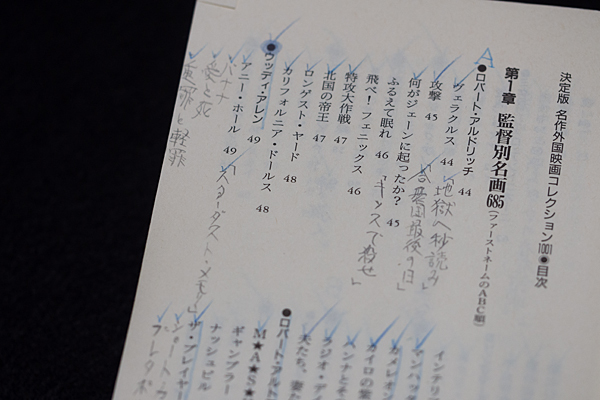 決定版 名作外国映画コレクション1001●目次
第1章 監督別名画685(ファーストネームのABC順)
A
●ロバート・アルドリッチ 44
ヴェラクルス 44 「地獄へ秒読み」
攻撃 45
何がジェーンに起ったか? 45 「合衆国最後の日」
ふるえて眠れ 46
飛べ!フェニックス 46 「キッスで殺せ」
特攻大作戦 47
北国の帝王 47
ロンゲスト・ヤード 48
カリフォルニア・ドールス 48
●ウッディ・アレン 49
アニー・ホール 49 「スターダスト・メモリー」
バナナ
愛と死
重罪と軽罪
インテリア
マンハッタ
カメレオン
カイロの紫
ハンナとそ
ラジオ・デイ
夫たち、妻た
●ロバート・アルト
M★A★S★
ギャンブラー
ナッシュビル
ザ・プレイヤー
ショート・
プレタポ